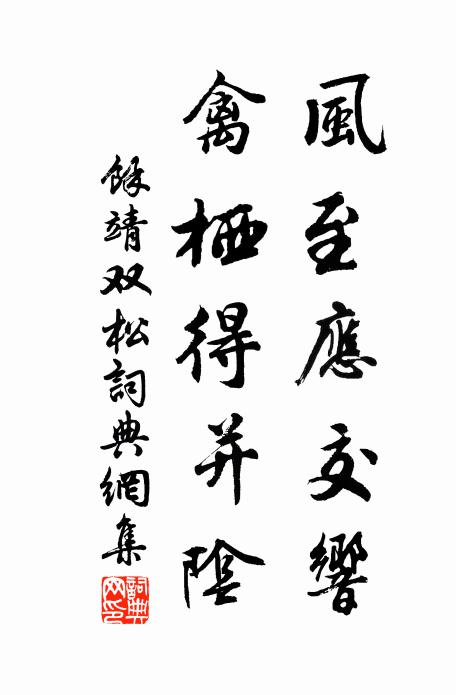 風至應交響
禽栖得并陰
餘靖双松詞典網集
詞典网印